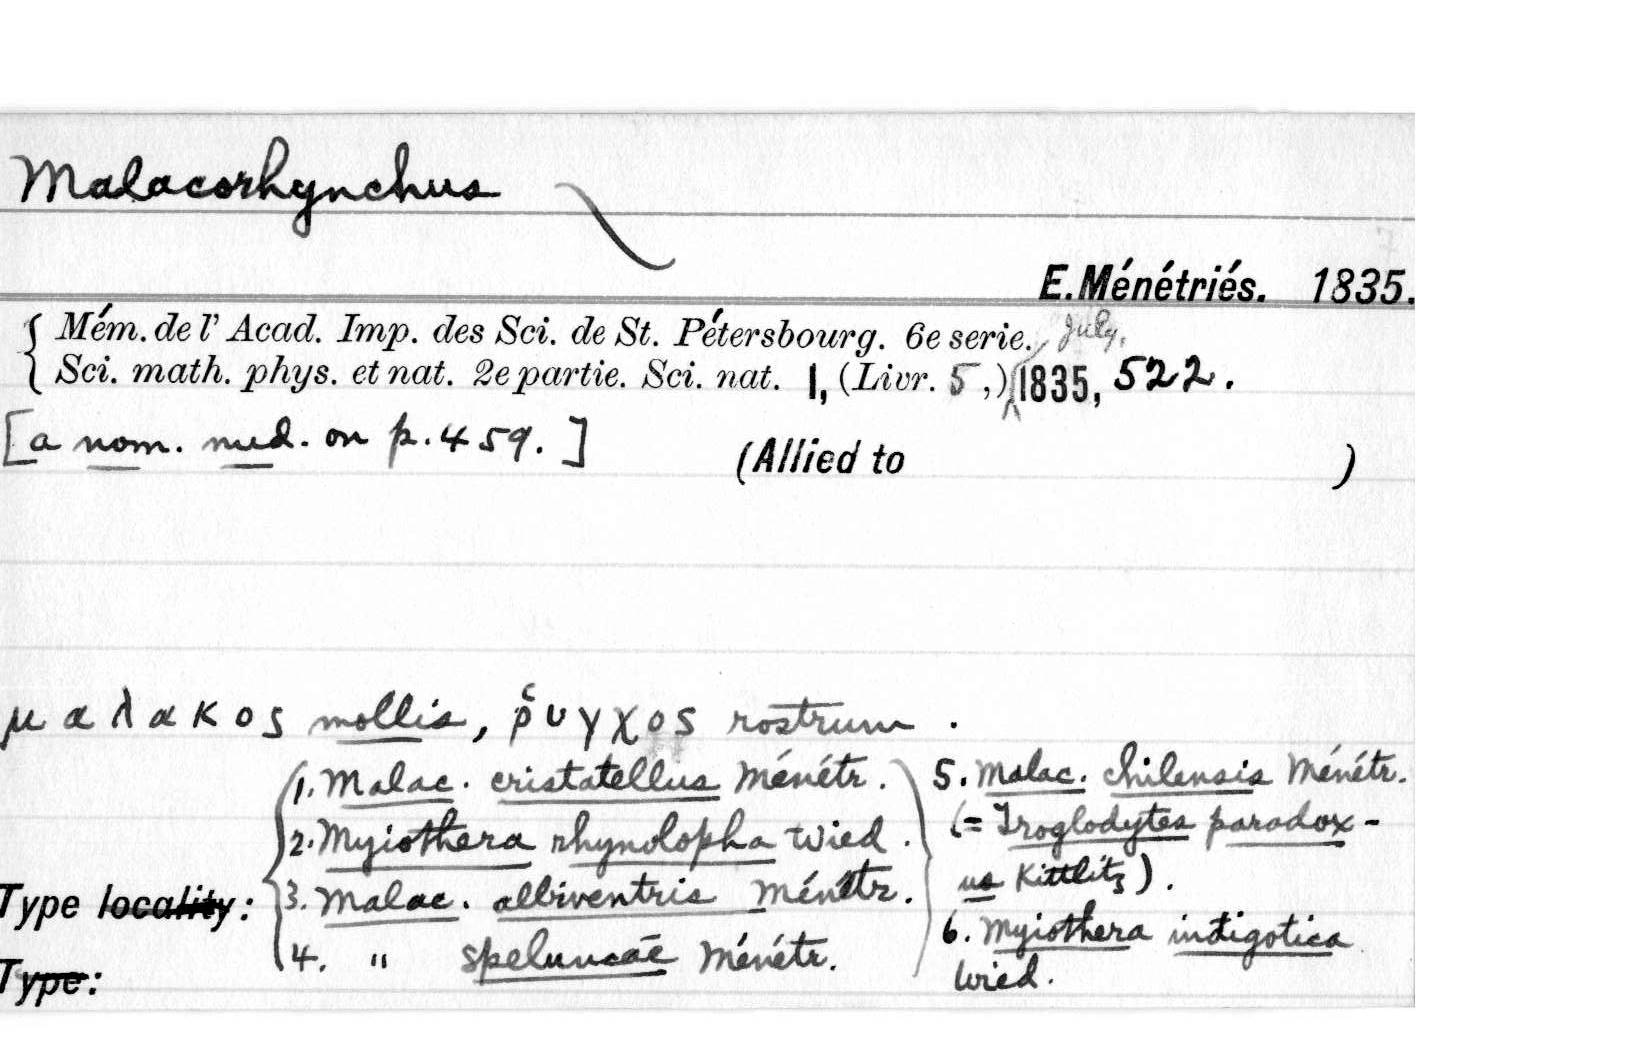 Malacorhynchus
E. Ménétriés. 1835.
Mém. de l' Acad. Imp. des Sci. de St. Pétersbourg. 6e serie. July,
Sci. math. phys. et nat. 2e partie. Sci. nat. 1, (Livr. 5,) 1835, 522.
[a nom. nud. on p. 459.]
(Allied to )
μαλακος mollis, ῥυγχος rostrum.
1. Malac. cristatellus Ménétr.
2. Myiothera rhynolopha Wied.
Type locality: 3. Malac. albiventris Ménétr.
4. " speluncae Ménétr.
Type:
5. Malac. chilensis Ménétr.
(= Troglodytes paradox-
us Kittlitz).
6. Myiothera indigotica
Wied.